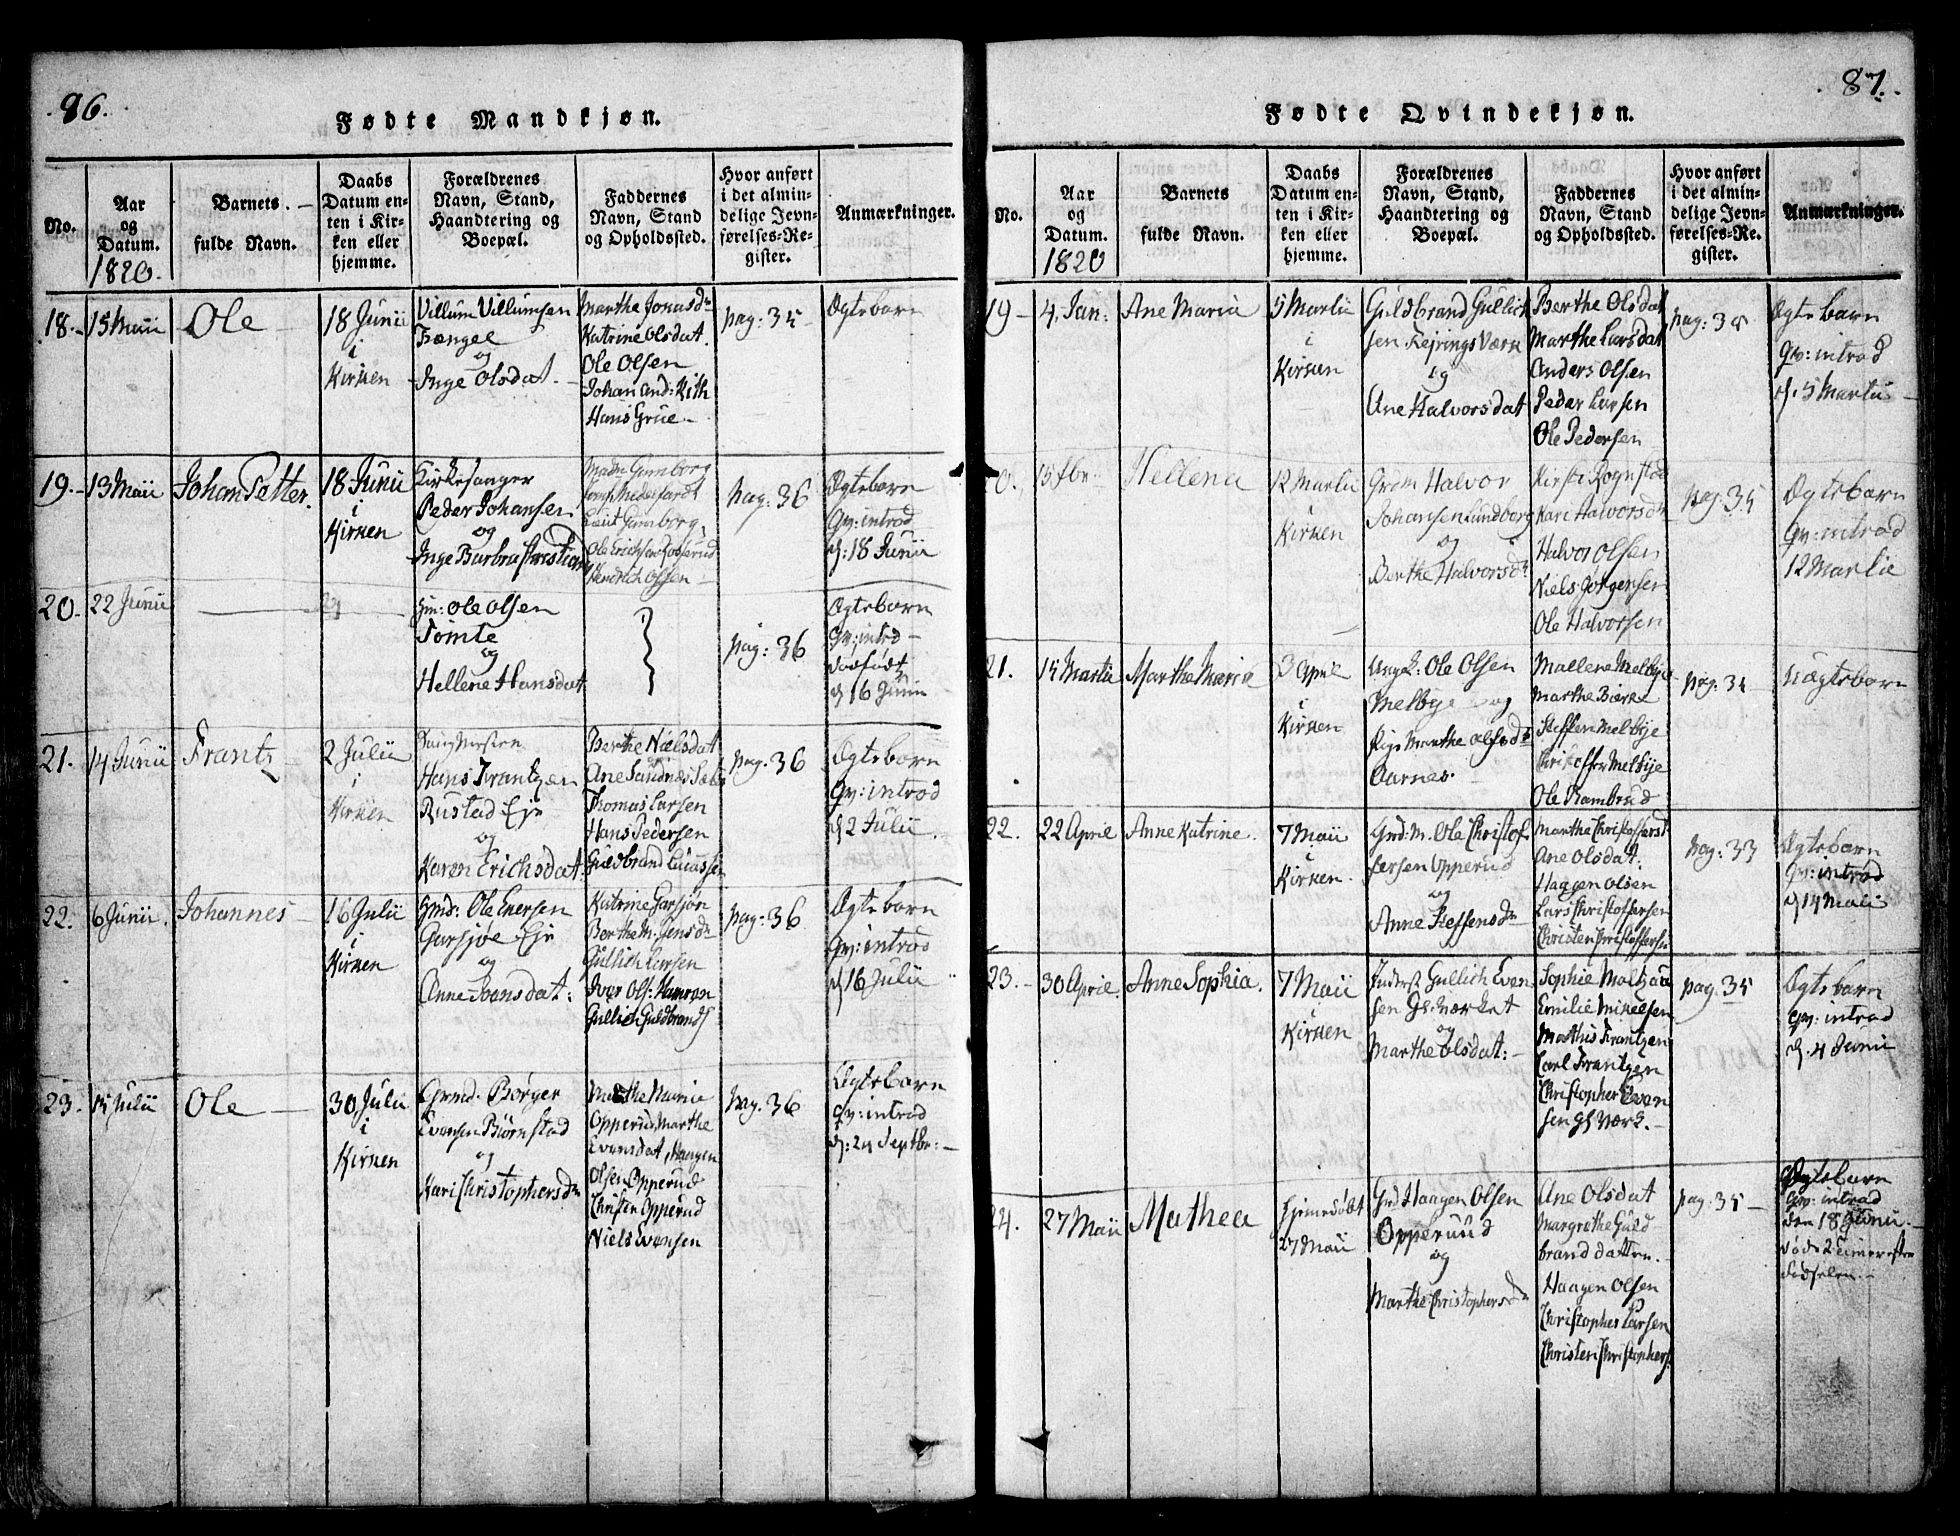 86.
Fødte Mandkjøn.
No.
Aar
og
Datum.
1820.
Barnets
fulde Navn.
Daabs
Datum en-
ten i Kir-
ken eller
hjemme.
Forældrenes
Navn, Stand,
Haandtering og
Boepæl.
Faddernes
Navn, Stand
og Opholdssted.
Hvor anført
i det almin-
delige Jevn-
førelses-Re-
gister.
Anmærkninger.
18.
15 Maii
Ole
18 Junii
i
Kirken
Villum Villumsen
Fængel
og
Inge Olsdat.
Marthe Jonasdr
Katrine Olsdat.
Ole Olsen
Johan And: Kith
Hans Grue
pag: 35
Ægtebarn
19.
13 Maii
Johan Petter.
18 Junii
i
Kirken
Kirkesanger
Peder Johansen
og
Inge Barbra Christian
Ole Erichsen
Hendrich Olsen
pag: 36
Ægtebarn
Qv: introd
d: 18 Junii
20.
22 Junii
Gm: Ole Olsen
Tømte
og
Hellene Hansdat
pag: 36
Ægtebarn
Qv: introd
dødfødt
d 16 Junii
21.
14 Junii
Frantz
2 Julii
i
Kirken
Hans Frantzen
Rustad Eje
og
Karen Erichsdat.
Berthe Nielsdat
Ane Sandnæs
Thomas Larsen
Hans Pedersen
Guldbrand
pag. 36
Ægtebarn
Qv: introd
d 2 Julii
22.
6 Junii.
Johannes
16 Julii
i
Kirken
Gmd: Ole Enersen
Garsjøe Eje
og
Anne Joensdat:
Katrine Garsjøn
Berthe M. Jensdr
Gullich Larsen
Iver Ols: Hamren
Gullich Guldbrands
pag: 36
Ægtebarn
Qv: introd
d 16 Julii
23.
15 Julii
Ole
30 Julii
i
Kirken
Grmd. Børger
Evensen Biørnstad
og
Kari Christophersdr
Marthe Marie
Opperud, Marthe
Evensdat, Haagen
Olsen Opperud
Christen Opperud
Niels Evensen
pag. 36
Ægtebarn
Qv: introd
d: 24 Septbr:
87.
Fødte Qvindekjøn.
No.
Aar
og
Datum.
1820
Barnets
fulde Navn.
Daabs
Datum en-
ten i Kir-
ken eller
hjemme.
Forældrenes
Navn, Stand,
Haandtering og
Boepæl.
Faddernes
Navn, Stand
og Opholdssted.
Hvor anført
i det almin-
delige Jevn-
førelses-Re-
gister.
Anmærkninger.
19
4 Jan:
Ane Maria
5 Martii
i
Kirken
Guldbrand Gullich
sen Fejrings Værk
og
Ane Halvorsdat
Berthe Olsdat
Marthe Larsdat
Anders Olsen
Peder Larsen
Ole Pedersen
pag: 38
Ægtebarn
Qv: introd
d. 5 Martii
20.
15 Fbr
Hellena
12 Martii
Kirken
Grdm Halvor
Johansen Lundberg
og
Berthe Halvorsdr
Kirsti Rognstad
Kari Halvorsdr
Halvor Olsen
Niels Jørgensen
Ole Halvorsen
pag: 35
Ægtebarn
Qv: introd
12 Martii
21.
15 Martii
Marthe Maria
3 April
i
Kirken
Ungk: Ole Olsen
Melbye og
Pige Marthe Olsdr
Aarnes.
Mallene Melbye
Marthe Bierke
Steffen Melbye
Christoffer Melbye
Ole Rambrud
pag: 34
Uægtebarn
22.
22 April
Anne Katrine.
7 Maii
Kirken.
Grd: M. Ole Christof
fersen Opperud
og
Anne Steffensdr
Marthe Christoffersd
Ane Olsdat.
Haagen Olsen
Lars Christoffersen
Christen Christoffersen
pag: 33
Ægtebarn
Qv: introd
d 14 Maii
23.
30 April.
Anne Sophia.
7 Maii
Kirken
Inderst Gullich Even
sen Gs: Værket
og
Marthe Olsdat:
Sophie Maltzau
Emilie Mikelsen
Mathis Frantzen
Carl Frantzen
Christopher Even
sen Gs Værk.
pag. 35
Ægtebarn
Qv: introd
d. 4 Junii
24.
27 Maii
Mathea
hjemedøbt
27 Maii
Grd Haagen Olsen
Opperuud
og
Marthe Christophersdr
Ane Olsdat
Margrethe Guld
branddatter.
Haagen Olsen
Christopher Larsen
Christen Christophers.
pag: 35
Ægtebarn
Qv: introd
den 18 Junii
døde 2 timer efter
Fødselen.